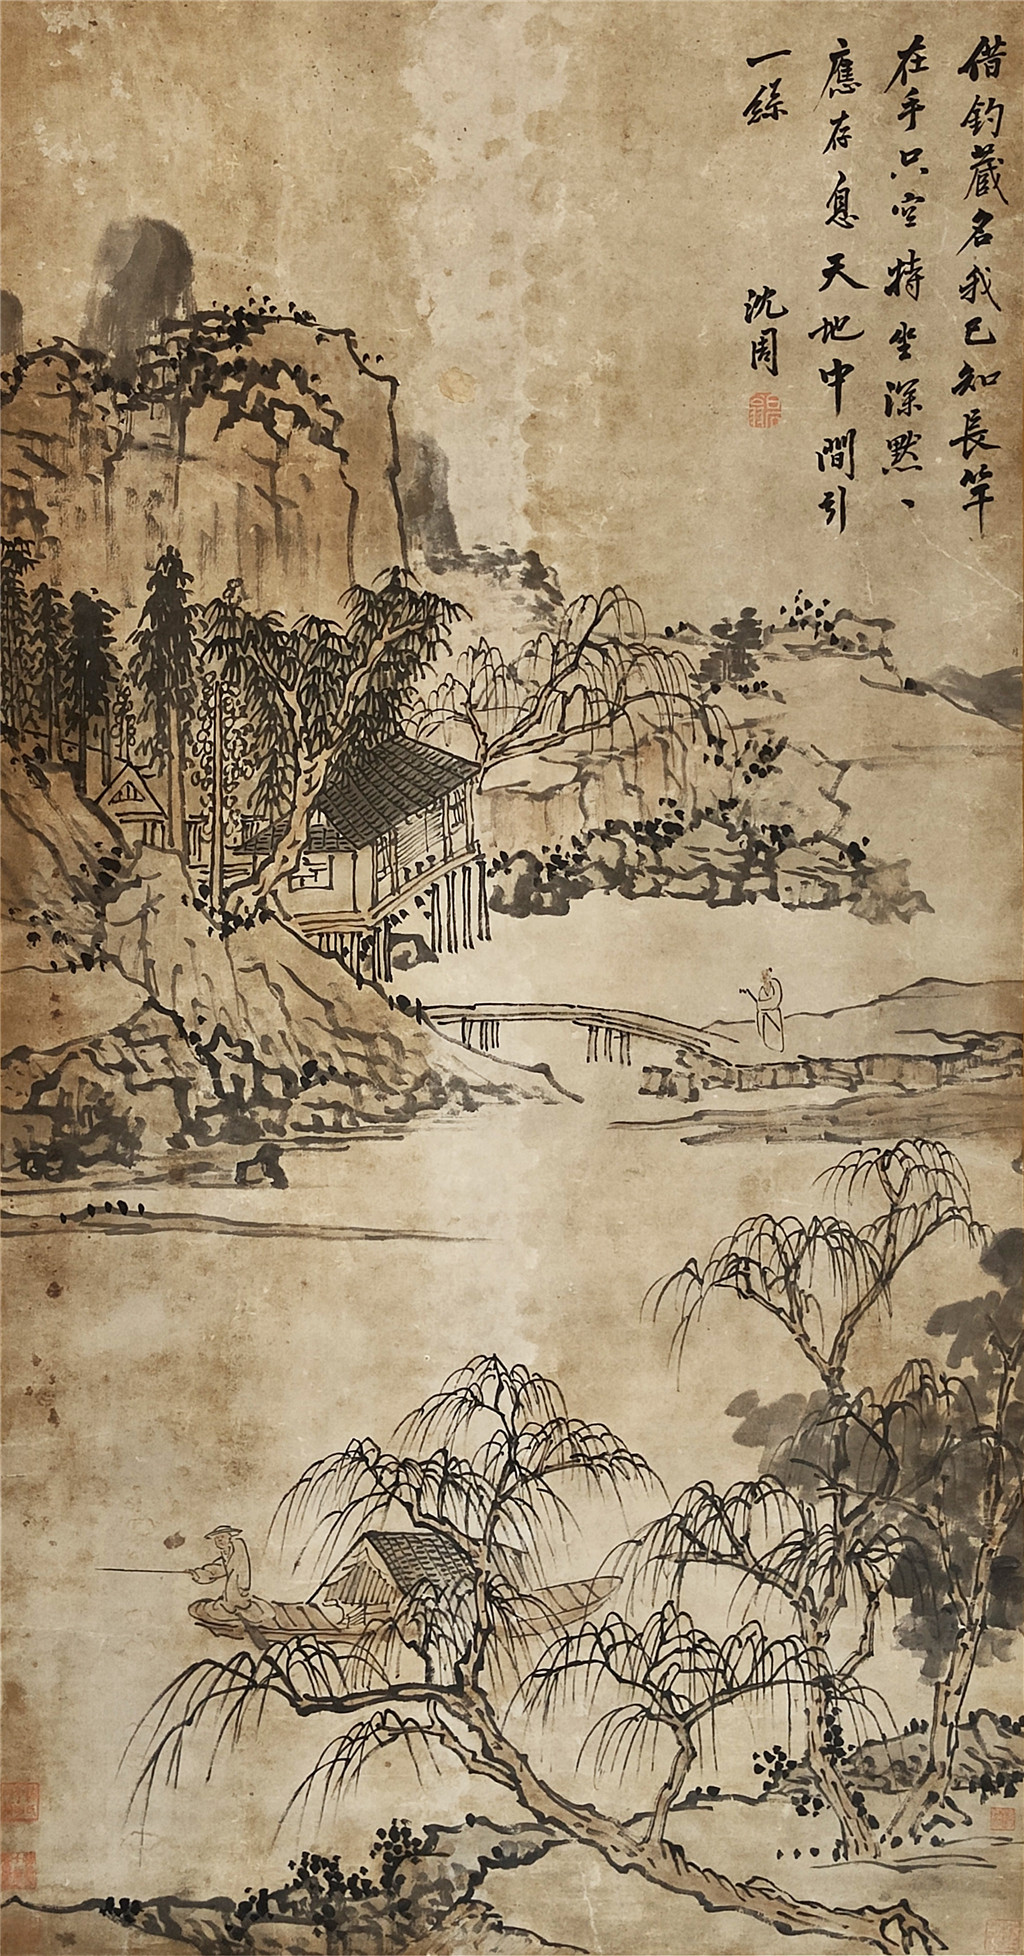 借釣藏名我已知長竿
在手只空持坐深默丶
應存息天地中間引
一絲
沈周